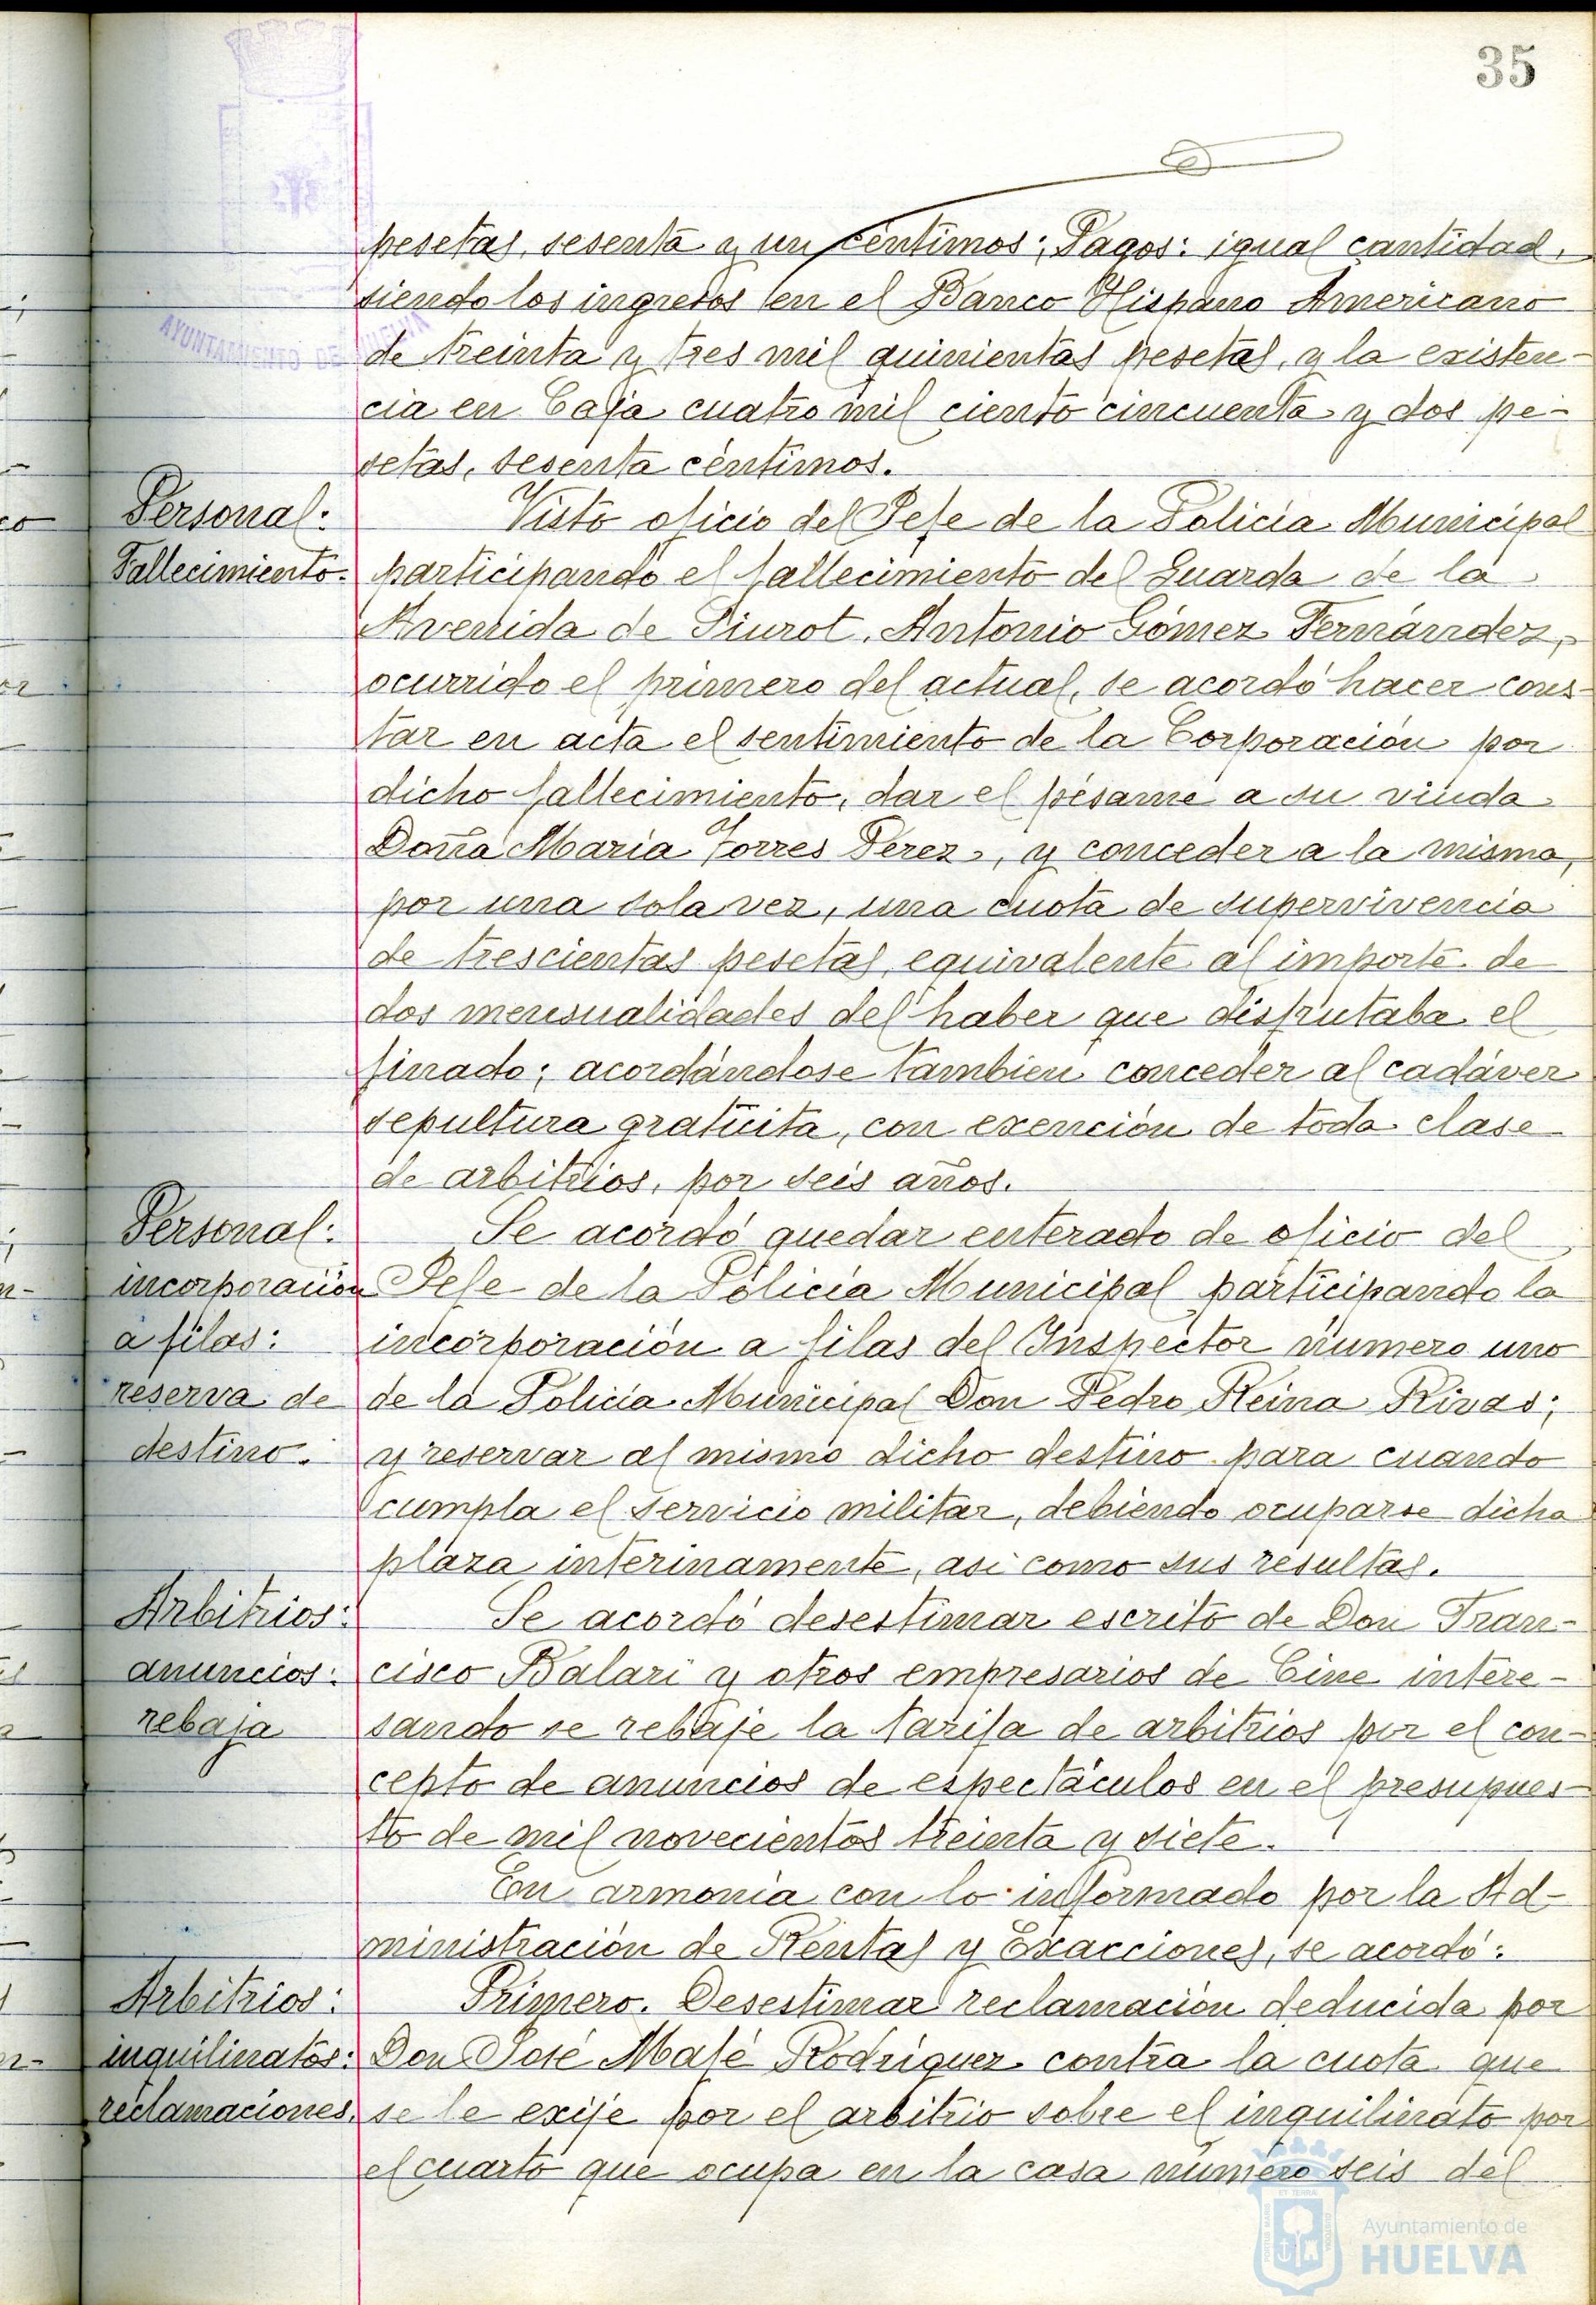 35
pesetas, sesenta y un céntimos; Pagos: igual cantidad,
siendo los ingresos en el Banco Hispano Americano
AYUNTAMIENTO DE HUELVA
de treinta y tres mil quinientas pesetas, y la existen-
cia en Caja cuatro mil ciento cincuenta y dos pe-
setas, sesenta céntimos.
Personal:
Fallecimiento.
Visto oficio del Jefe de la Policía Municipal
participando el fallecimiento del Guarda de la
Avenida de Pinzot, Antonio Gómez Fernández,
ocurrido el primero del actual, se acordó hacer cons-
tar en acta el sentimiento de la Corporación por
dicho fallecimiento, dar el pésame a su viuda
Doña María Torres Pérez, y conceder a la misma,
por una sola vez, una cuota de supervivencia
de trescientas pesetas, equivalente al importe de
dos mensualidades del haber que disfrutaba el
finado; acordándose también conceder al cadáver
sepultura gratuita, con exención de toda clase
de arbitrios, por seis años.
Personal:
incorporación
a filas:
reserva de
destino.
Se acordó quedar enterado de oficio del
Jefe de la Policía Municipal participando la
incorporación a filas del Inspector número uno
de la Policía Municipal Don Pedro Reina Rivas;
y reservar al mismo dicho destino para cuando
cumpla el servicio militar, debiendo ocuparse dicha
plaza interinamente, así como sus resultas.
Arbitrios:
anuncios:
rebaja
Se acordó desestimar escrito de Don Fran-
cisco Balari y otros empresarios de Cine intere-
sando se rebaje la tarifa de arbitrios por el con-
cepto de anuncios de espectáculos en el presupues-
to de mil novecientos treinta y siete.
En armonía con lo informado por la Ad-
ministración de Rentas y Exacciones, se acordó:
Arbitrios:
inquilinatos:
reclamaciones.
Primero. Desestimar reclamación deducida por
Don José Malé Rodríguez contra la cuota que
se le exije por el arbitrio sobre el inquilinato por
el cuarto que ocupa en la casa número seis del
Ayuntamiento de
HUELVA